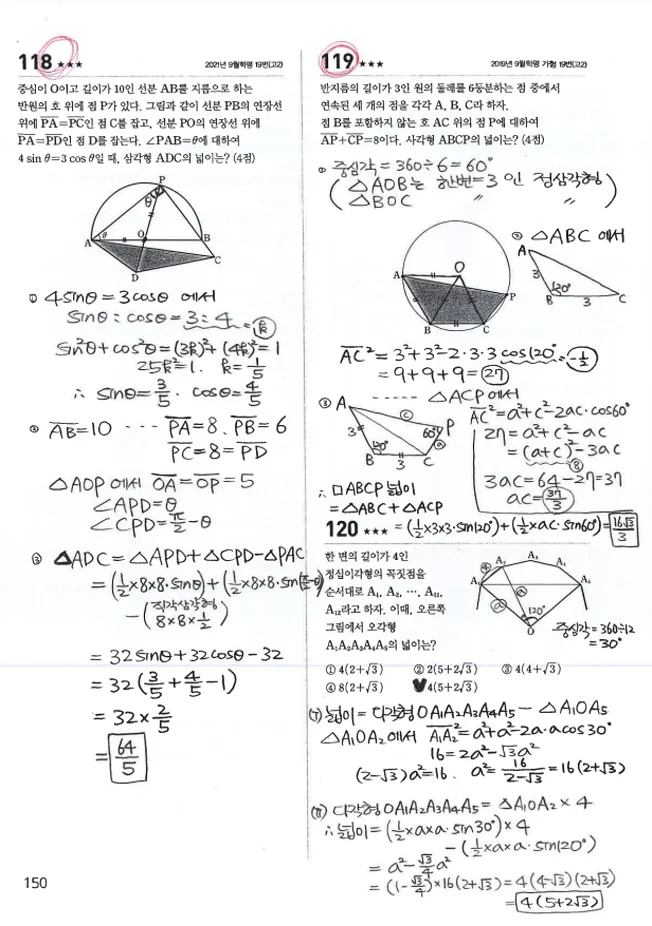 118 ★★★ 2021년 9월학평 19번(고2)
중심이 O이고 길이가 10인 선분 AB를 지름으로 하는
반원의 호 위에 점 P가 있다. 그림과 같이 선분 PB의 연장선
위에 PA=PC인 점 C를 잡고, 선분 PO의 연장선 위에
PA=PD인 점 D를 잡는다. ∠PAB=θ에 대하여
4 sin θ=3 cos θ일 때, 삼각형 ADC의 넓이는? (4점)
P
θ
A θ O B
C
D
① 4sinθ = 3cosθ 에서
sinθ : cosθ = 3 : 4 = k
sin²θ + cos²θ = (3k)² + (4k)² = 1
25k² = 1. k = 1/5
∴ sinθ = 3/5. cosθ = 4/5
② AB=10 --- PA=8. PB=6
PC=8=PD
△AOP 에서 OA=OP=5
∠APD=θ
∠CPD=π/2-θ
③ △ADC = △APD+△CPD-△PAC
= (1/2×8×8·sinθ)+(1/2×8×8·sin(π/2-θ))
-(직각삼각형 8×8×1/2)
= 32sinθ+32cosθ-32
= 32(3/5+4/5-1)
= 32×2/5
= 64/5
150
119 ★★★ 2019년 9월학평 가형 19번(고2)
반지름의 길이가 3인 원의 둘레를 6등분하는 점 중에서
연속된 세 개의 점을 각각 A, B, C라 하자.
점 B를 포함하지 않는 호 AC 위의 점 P에 대하여
AP+CP=8이다. 사각형 ABCP의 넓이는? (4점)
① 중심각 = 360÷6 = 60°
( △AOB는 한변=3 인 정삼각형 )
△BOC 〃 〃
② △ABC 에서
A
3 120°
B 3 C
O
A
P
B C
AC² = 3²+3²-2·3·3 cos120° = -1/2
= 9+9+9 = 27
③ A ----- △ACP 에서
c
3 60° P
120° a
B 3 C
AC² = a²+c²-2ac·cos60°
27 = a²+c²-ac
= (a+c)²-3ac
8
3ac = 64-27 = 37
ac = 37/3
∴ □ABCP 넓이
= △ABC+△ACP
= (1/2×3×3·sin120°)+(1/2×ac·sin60°) = 16√3/3
120 ★★★
한 변의 길이가 4인
정십이각형의 꼭짓점을
순서대로 A₁, A₂, ⋯, A₁₁,
A₁₂라고 하자. 이때, 오른쪽
그림에서 오각형
A₁A₂A₃A₄A₅의 넓이는?
A₃
A₂ A₄
4
A₁ a A₅
a 120°
O
중심각=360÷12
=30°
① 4(2+√3) ② 2(5+2√3) ③ 4(4+√3)
④ 8(2+√3) 4(5+2√3)
(ㄱ) 넓이 = 다각형 OA₁A₂A₃A₄A₅ - △A₁OA₅
△A₁OA₂에서 A₁A₂² = a²+a²-2a·acos30°
16 = 2a²-√3a²
(2-√3)a²=16. a² = 16/(2-√3) = 16(2+√3)
(ㄴ) 다각형 OA₁A₂A₃A₄A₅ = △A₁OA₂×4
∴ 넓이 = (1/2×a×a·sin30°)×4
-(1/2×a×a·sin120°)
= a²-√3/4a²
= (1-√3/4)×16(2+√3) = 4(4-√3)(2+√3)
= 4(5+2√3)